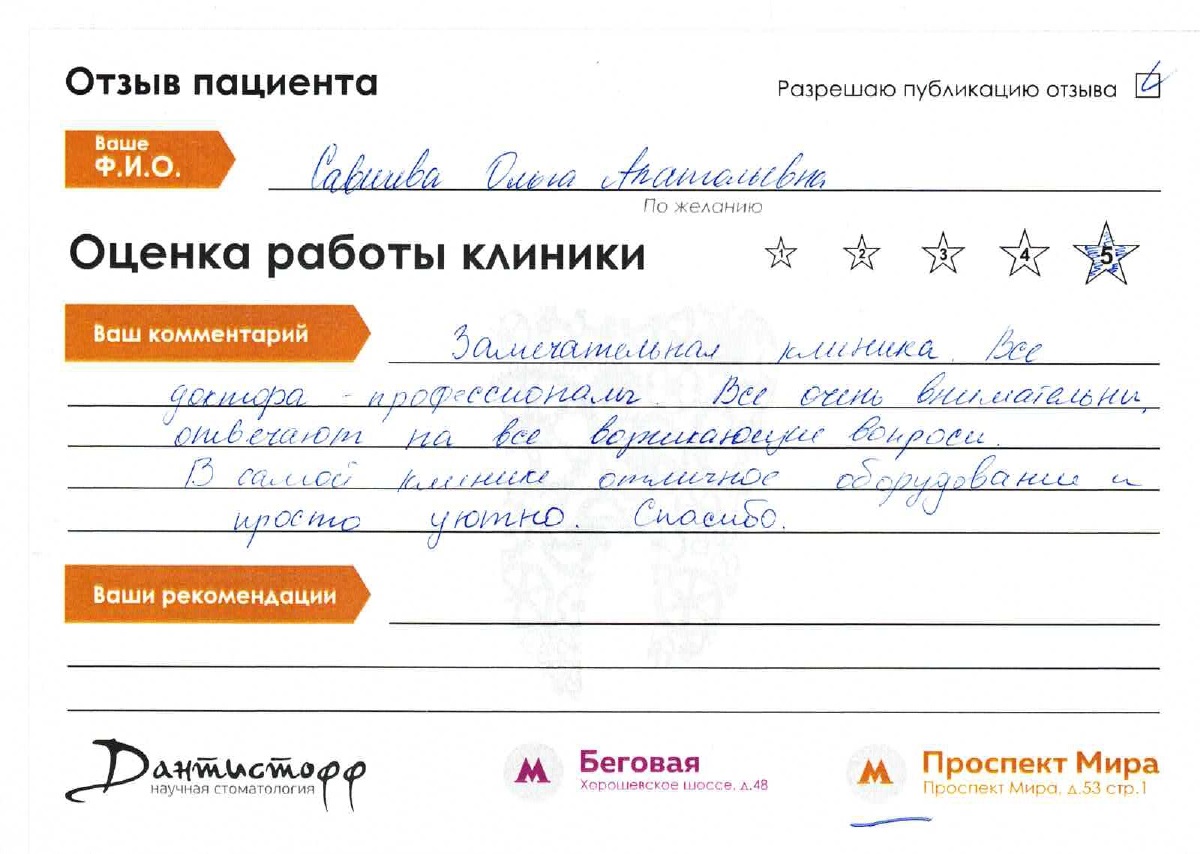 Отзыв пациента
Разрешаю публикацию отзыва
Ваше
Ф.И.О.
Ольга Анатольевна
По желанию
Оценка работы клиники
1 2 3 4 5
Ваш комментарий
Замечательная клиника. Все
доктора - профессионалы. Все очень внимательны,
отвечают на все возникающие вопросы.
В самой клинике отличное оборудование и
просто уютно. Спасибо.
Ваши рекомендации
Дантистофф
научная стоматология
М Беговая
Хорошевское шоссе, д.48
М Проспект Мира
Проспект Мира, д.53 стр.1